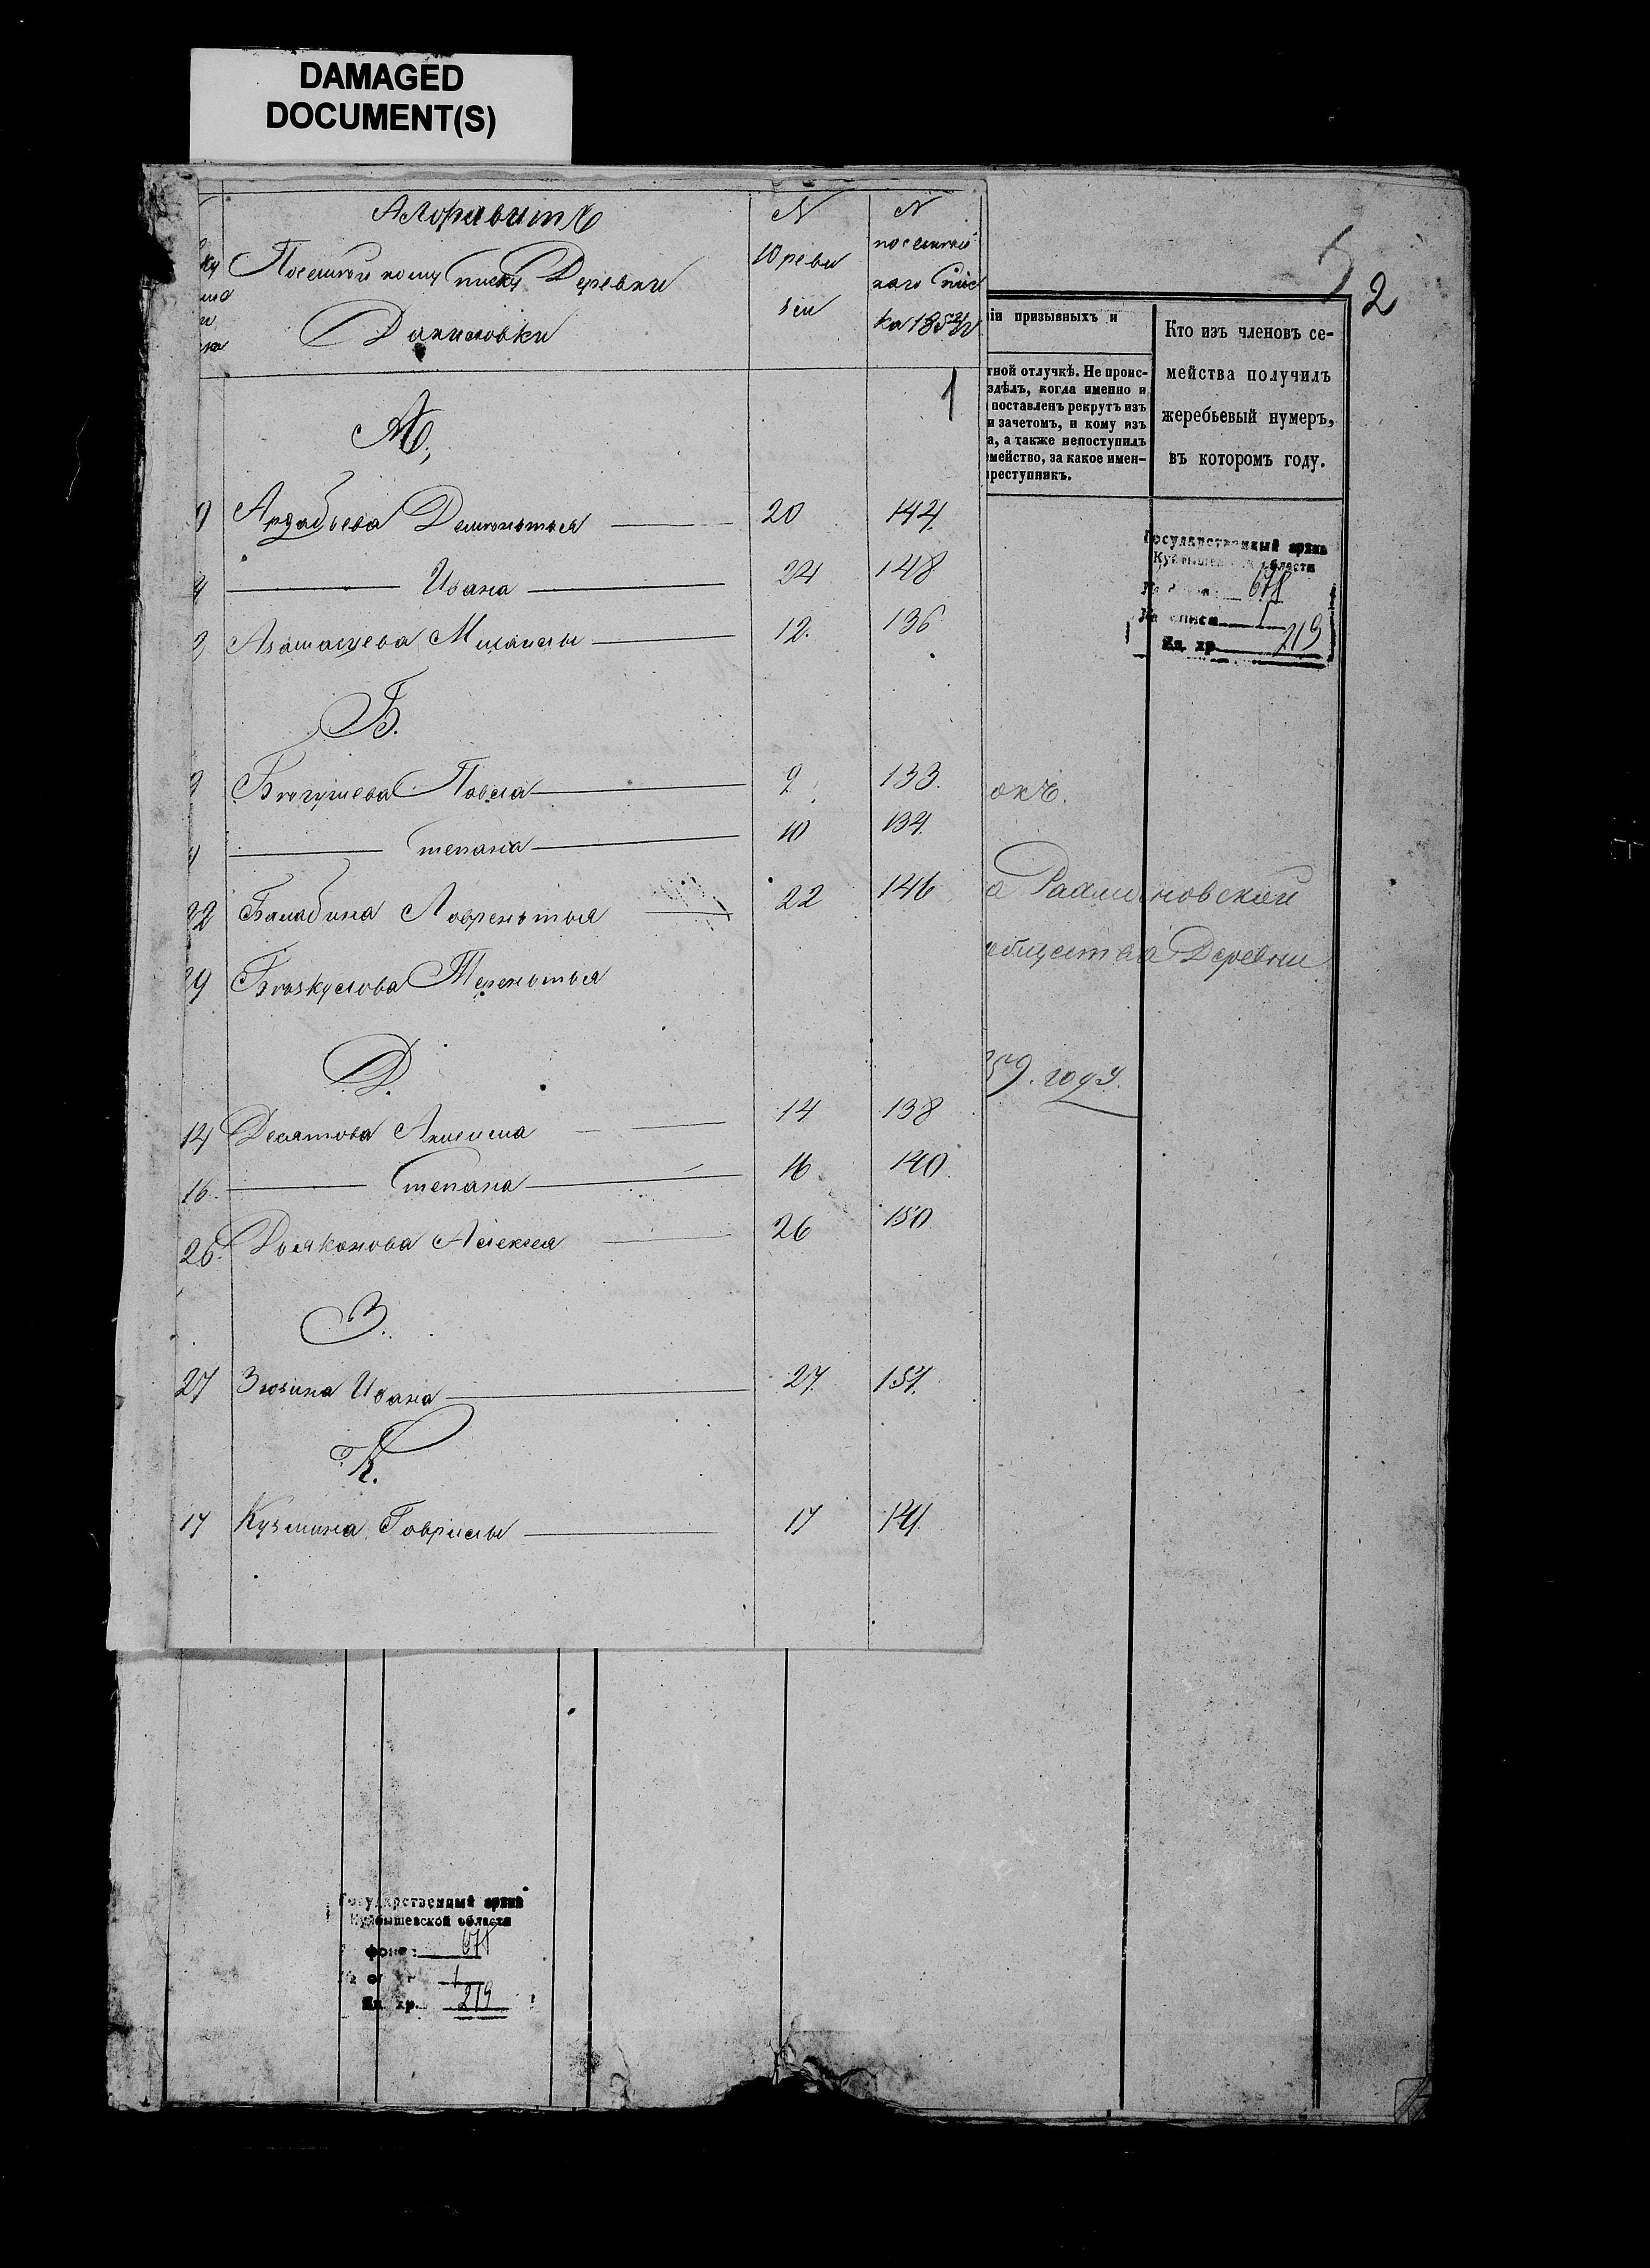 DAMAGED
DOCUMENT(S)
Алфавитъ
Посемейному списку Деревни
Даниловки
N
10 реви
зіи
N
посемей
наго Спис
ка 1858 г
1
А.
Ардабьева Дементья 20 144.
4 Ивана 24 148
Мишаилы 12. 136
Б.
Павела 9 133.
Степана 10 134.
22 Балабина Лаврентья 22 146
29 Терентья
Д.
14 Десятова 14 138
16. Степана 16 140.
26. Дьяконова Алексея 26 150
З.
27 Зюзина Ивана 27. 151.
К.
17 Кузмина Гаврилы 17 141.
5
2
ніи призывныхъ и
тной отлучкѣ. Не проис-
здѣлъ, когда именно и
поставленъ рекрутъ изъ
и зачетомъ, и кому изъ
а, а также непоступилъ
мейство, за какое имен-
преступникъ.
Кто изъ членовъ се-
мейства получилъ
жеребьевый нумеръ,
въ которомъ году.
Государственный архив
Куйбышевской области
678
1
Ед. хр. 219
окъ.
а
общества Деревни
59. году.
Государственный архив
Куйбышевской области
фонд 678
1
Ед. хр. 219